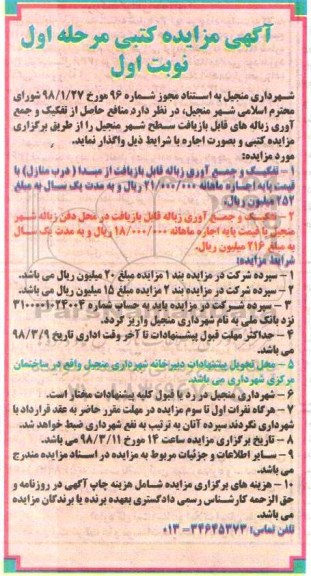 آگهی مزایده کتبی مرحله اول
نوبت اول
شهرداری منجیل به استناد مجوز شماره ۹۶ مورخ ۹۸/۱/۲۷ شورای
محترم اسلامی شهر منجیل، در نظر دارد منافع حاصل از تفکیک و جمع
آوری زباله های قابل بازیافت سطح شهر منجیل را از طریق برگزاری
مزایده کتبی و بصورت اجاره با شرایط ذیل واگذار نماید.
مورد مزایده:
۱ – تفکیک و جمع آوری زباله قابل بازیافت از مبدا ( درب منازل) با
قیمت پایه اجاره ماهانه ۲۱/۰۰۰/۰۰۰ ریال و به مدت یک سال به مبلغ
۲۵۲ میلیون ریال.
۲ – تفکیک و جمع آوری زباله قابل بازیافت در محل دفن زباله شهر
منجیل با قیمت پایه اجاره ماهانه ۱۸/۰۰۰/۰۰۰ ریال و به مدت یک سال
به مبلغ ۲۱۶ میلیون ریال.
شرایط مزایده:
۱ – سپرده شرکت در مزایده بند ۱ مزایده مبلغ ۲۰ میلیون ریال می باشد.
۲ – سپرده شرکت در مزایده بند ۲ مزایده مبلغ ۱۵ میلیون ریال می باشد.
۳ – سپرده شرکت در مزایده باید به حساب شماره ۳۱۰۰۰۰۱۰۲۴۰۰۴
نزد بانک ملی به نام شهرداری منجیل واریز گردد.
۴ – حداکثر مهلت قبول پیشنهادات تا آخر وقت اداری تاریخ ۹۸/۳/۹
می باشد.
۵ – محل تحویل پیشنهادات دبیرخانه شهرداری منجیل واقع در ساختمان
مرکزی شهرداری می باشد.
۶ – شهرداری منجیل در رد یا قبول کلیه پیشنهادات مختار است.
۷ – هرگاه نفرات اول تا سوم مزایده در مهلت مقرر حاضر به عقد قرارداد با
شهرداری نگردند سپرده آنان به ترتیب به نفع شهرداری ضبط خواهد شد.
۸ – تاریخ برگزاری مزایده ساعت ۱۴ مورخ ۹۸/۳/۱۱ می باشد.
۹ – سایر اطلاعات و جزئیات مربوط به مزایده در اسناد مزایده مندرج
می باشد.
۱۰ – هزینه های برگزاری مزایده شامل هزینه چاپ آگهی در روزنامه و
حق الزحمه کارشناس رسمی دادگستری بعهده برنده یا برندگان مزایده
می باشد.
تلفن تماس: ۳۴۶۴۵۳۷۳= ۰۱۳